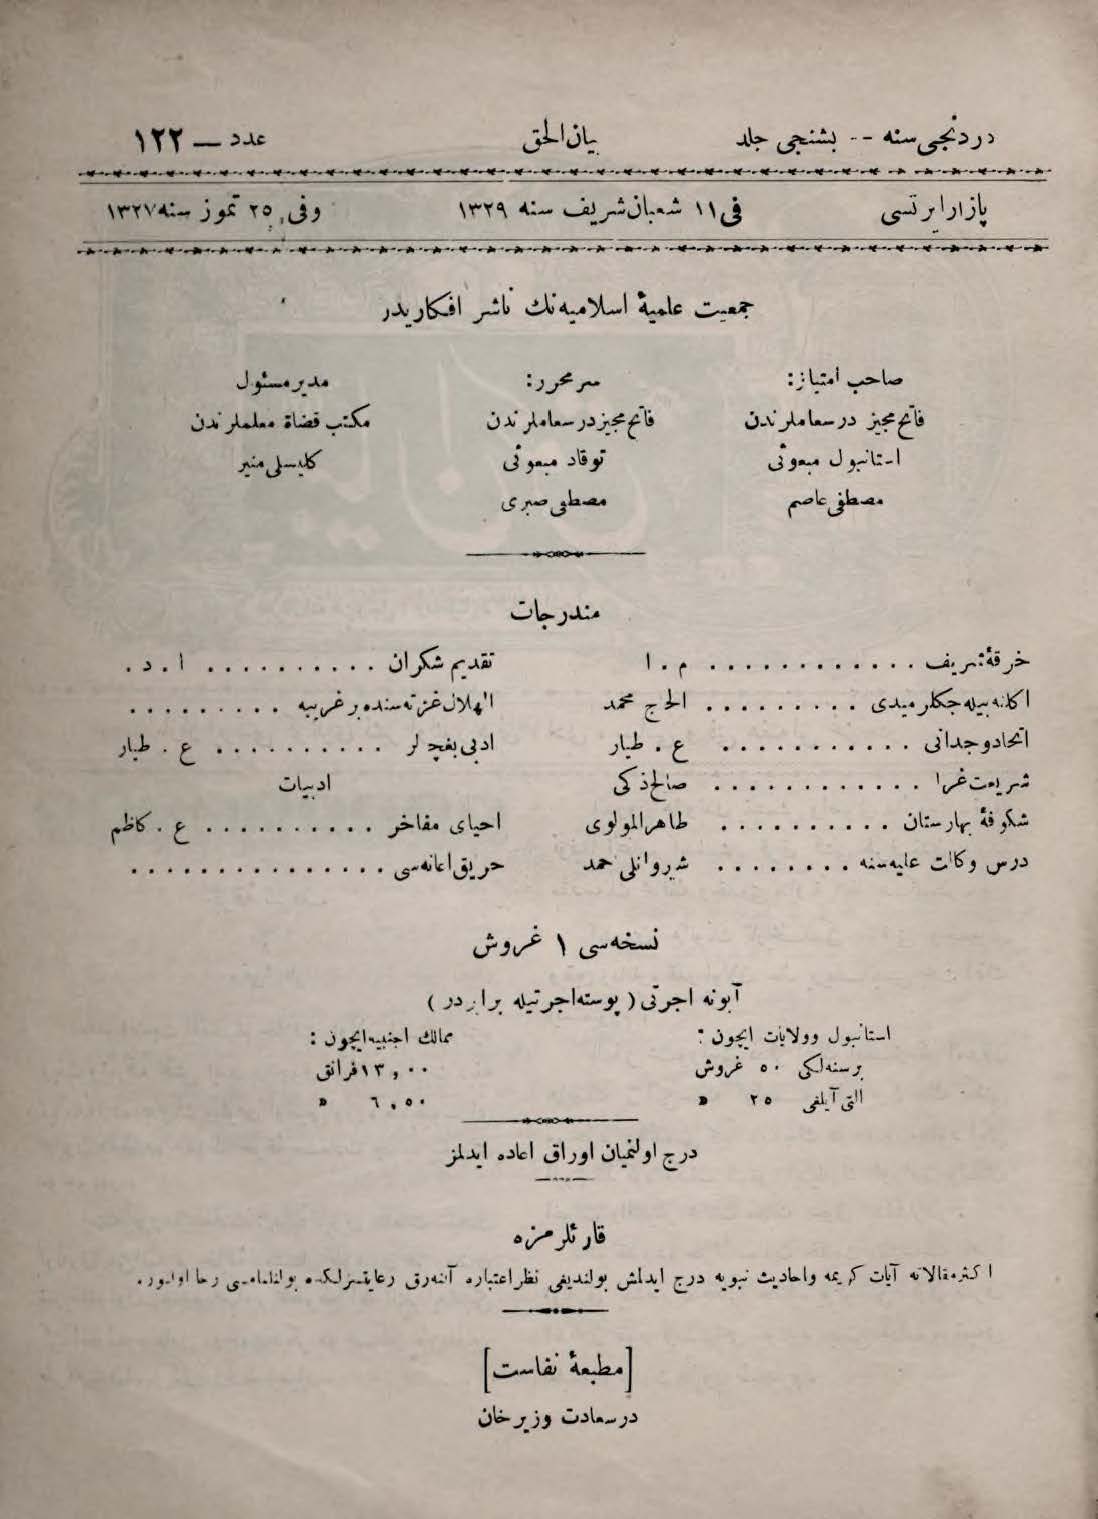 دردنجی سنه -- بشنجی جلد بیان الحق عدد — ۱۲۲
پازار ایرتسی فی ۱۱ شعبان شریف سنه ۱۳۲۹ وفی ۲۵ تموز سنه ۱۳۲۷
جمعیت علمیهٔ اسلامیه‌نك ناشر افکاریدر
صاحب امتیاز: سر محرر: مدیر مسئول
فاتح مجیز درسعاملرندن فاتح مجیز درسعاملرندن مکتب قضاة معلملرندن
استانبول مبعوثی توقاد مبعوثی کلیسلی منیر
مصطفی عاصم مصطفی صبری
مندرجات
خرقهٔ شریف . . . . . . . . . . . . م . ا تقدیم شکران . . . . . . . . . . ا . د .
اکلنه بیله‌جکلرمیدی . . . . . . . . . الحاج محمد الهلال غزته‌سنده بر غریبه . . . . . . . . .
اتحاد وجدانی . . . . . . . . . . . ع . طیار ادبی بغچه‌لر . . . . . . . . . . ع . طیار
شریعت غرا . . . . . . . . . . . . صالح ذکی ادبیات
شکوفهٔ بهارستان . . . . . . . . . . طاهر المولوی احیای مفاخر . . . . . . . . . . ع . کاظم
درس وکالت علیه‌سنه . . . . . . . . شیروانلی حمد حریق اعانه‌سی . . . . . . . . . . . . . . .
نسخه‌سی ۱ غروش
آبونه اجرتی ( پوسته اجرتیله برابردر )
استانبول وولایات ایچون : ممالك اجنبیه ایچون :
برسنه‌لکی ۵۰ غروش ۱۳,۰۰ فرانق
التی آیلغی ۲۵ » ۶,۵۰ »
درج اولنمیان اوراق اعاده ایدلمز
قارئلرمزه
اکثر مقالاته آیات کریمه واحادیث نبویه درج ایدلمش بولندیغی نظر اعتباره آلنه‌رق رعایتسزلکده بولنلمامسی رجا اولنور.
[مطبعهٔ نفاست]
درسعادت وزیر خان